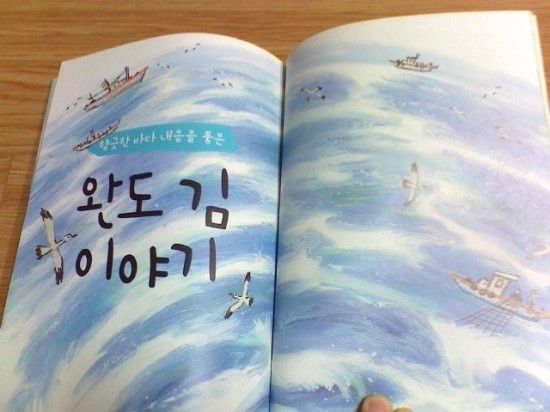 향긋한 바다 내음을 품은
완도 김
이야기